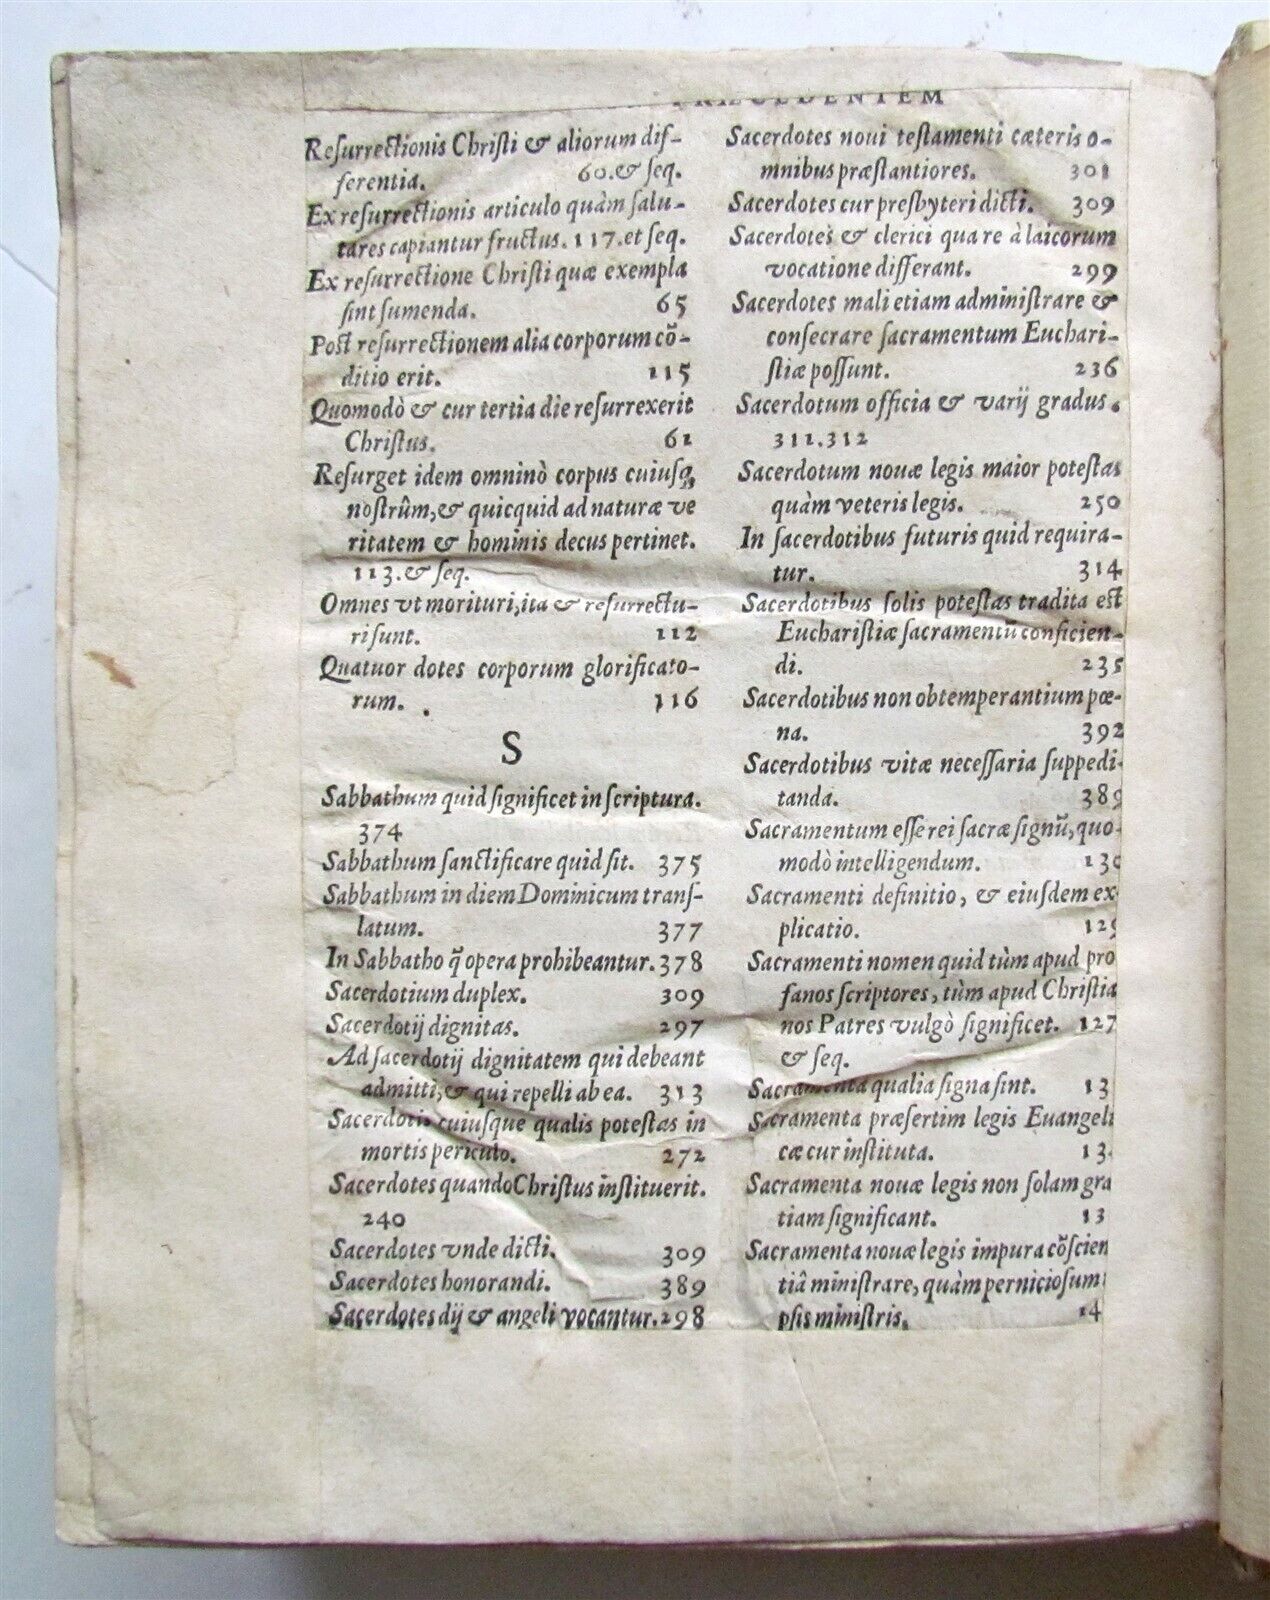 PRÆCEDENTEM
Reſurrectionis Chriſti & aliorum dif-
ferentia. 60.& ſeq.
Ex reſurrectionis articulo quàm ſalu-
tares capiantur fructus. 117.et ſeq.
Ex reſurrectione Chriſti quæ exempla
ſint ſumenda. 65
Poſt reſurrectionem alia corporum cõ-
ditio erit. 115
Quomodò & cur tertia die reſurrexerit
Chriſtus. 61
Reſurget idem omninò corpus cuiuſq;
noſtrûm,& quicquid ad naturæ ve
ritatem & hominis decus pertinet.
113.& ſeq.
Omnes vt morituri,ita & reſurrectu-
ri ſunt. 112
Quatuor dotes corporum glorificato-
rum. 116
S
Sabbathum quid ſignificet in ſcriptura.
374
Sabbathum ſanctificare quid ſit. 375
Sabbathum in diem Dominicum tranſ-
latum. 377
In Sabbatho q̃ opera prohibeantur. 378
Sacerdotium duplex. 309
Sacerdotij dignitas. 297
Ad ſacerdotij dignitatem qui debeant
admitti,& qui repelli ab ea. 313
Sacerdotis cuiuſque qualis poteſtas in
mortis periculo. 272
Sacerdotes quando Chriſtus inſtituerit.
240
Sacerdotes vnde dicti. 309
Sacerdotes honorandi. 389
Sacerdotes dij & angeli vocantur. 298
Sacerdotes noui teſtamenti cæteris o-
mnibus præſtantiores. 301
Sacerdotes cur presbyteri dicti. 309
Sacerdotes & clerici quare à laicorum
vocatione differant. 299
Sacerdotes mali etiam adminiſtrare &
conſecrare ſacramentum Euchari-
ſtiæ poſſunt. 236
Sacerdotum officia & varij gradus.
311.312
Sacerdotum nouæ legis maior poteſtas
quàm veteris legis. 250
In ſacerdotibus futuris quid requira-
tur. 314
Sacerdotibus ſolis poteſtas tradita eſt
Euchariſtiæ ſacramentũ conficien-
di. 235
Sacerdotibus non obtemperantium pœ-
na. 392
Sacerdotibus vitæ neceſſaria ſuppedi-
tanda. 389
Sacramentum eſſe rei ſacræ ſignũ, quo-
modò intelligendum. 130
Sacramenti definitio, & eiuſdem ex
plicatio. 129
Sacramenti nomen quid tùm apud pro
fanos ſcriptores, tùm apud Chriſtia
nos Patres vulgò ſignificet. 127
& ſeq.
Sacramenta qualia ſigna ſint. 13
Sacramenta præſertim legis Euangeli
cæ cur inſtituta. 13
Sacramenta nouæ legis non ſolam gra
tiam ſignificant. 13
Sacramenta nouæ legis impura cõſcien
tiâ miniſtrare, quàm pernicioſum
pſis miniſtris. 14